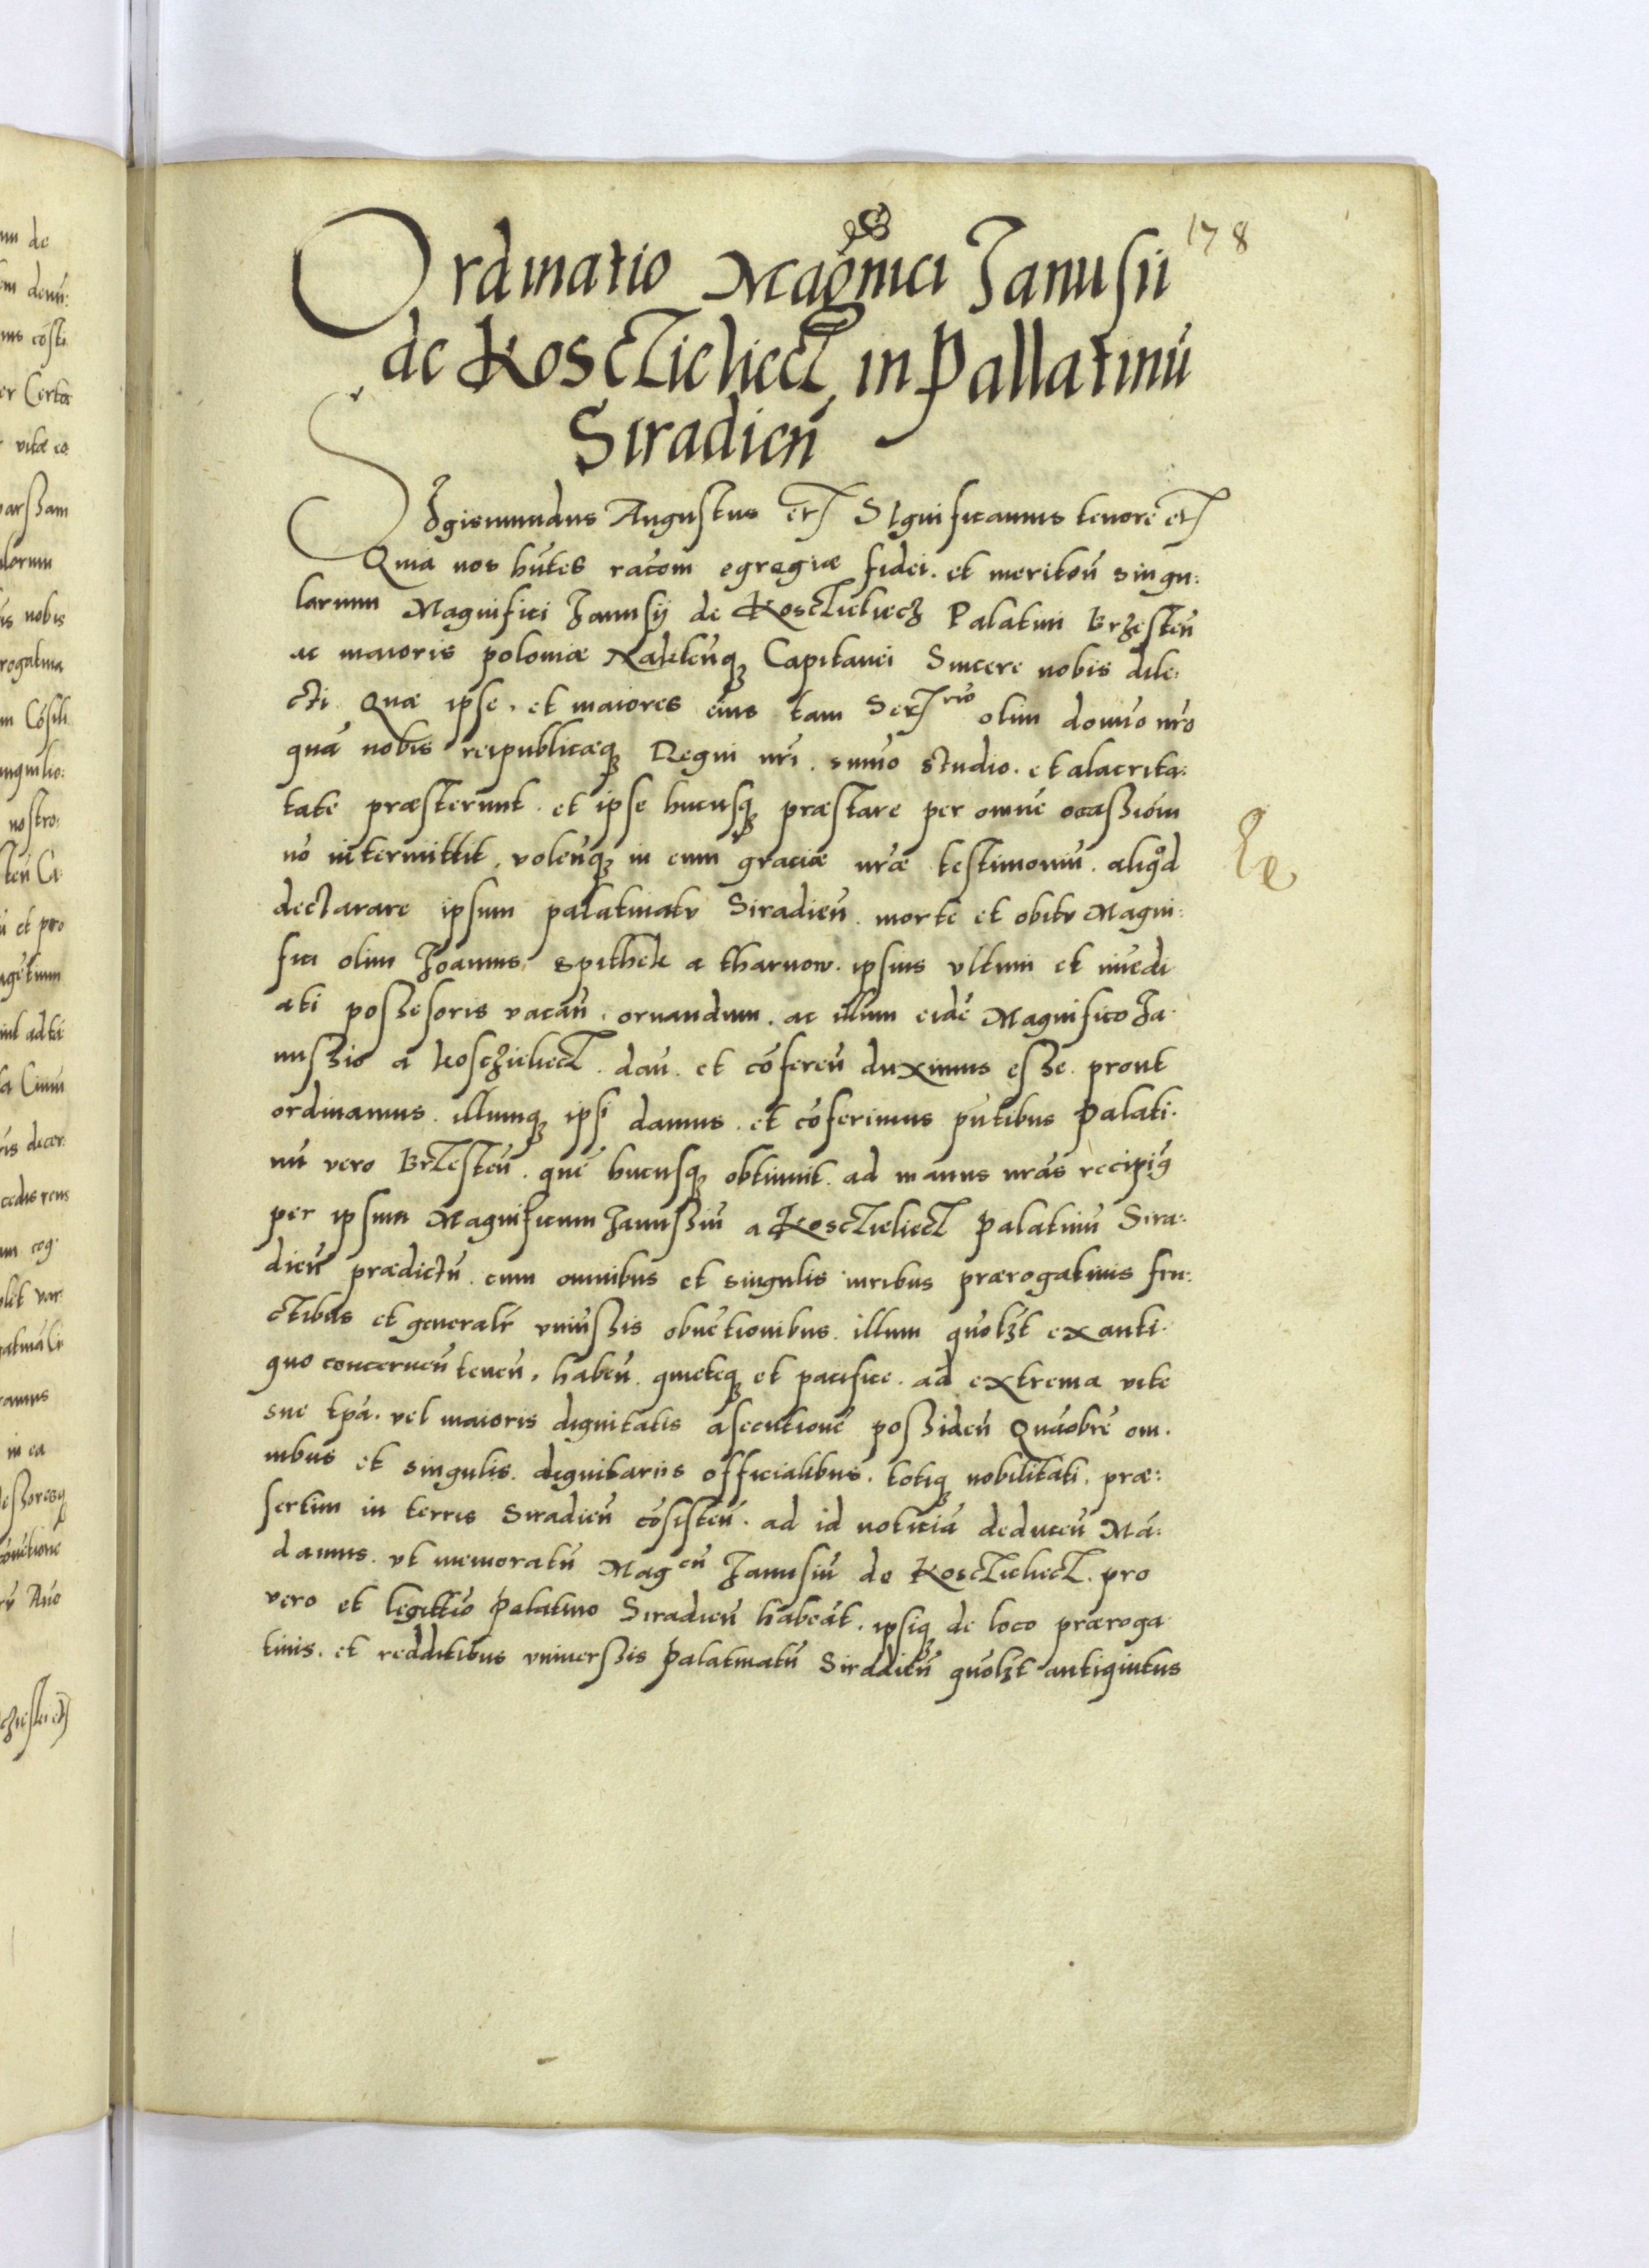 178
Ordinatio Magnici Janusii
de Kosczieliecz in Pallatinū
Siradień
Sigismundus Augustus etc Significamus tenore etc
Quia nos hūtes racom egregiæ fidei. et meritoū singu:
larum Magnifici Janusij de Kosczieliecz Palatini Brzesteń
ac maioris poloniæ Naklenq̃ Capitanei Sincere nobis dile:
cti Quæ ipse. et maiores eius tam Ser olim domio nr̄o
quā nobis reipublicæq̃ Regni nr̄i. sumō studio. et alacrita:
tate præsterunt. et ipse hucusq̃ præstare per omnē ocassiom
nō intermittit. volenq̃ in eum graciæ nr̄æ testimoniū. aliqd
declarare ipsum palatinatv Siradień. morte et obitv Magni:
fici olim Joannis Spithek a tharnow. ipsius vltimi et imedi
ati possesoris vacan̄. ornandum. ac illum eidē Magnifico Ja-
nussio a Kosczieliecz. dan̄. et cōferen̄ duximus esse. prout
ordinamus. illumq̃ ipsi damus. et cōferimus pn̄tibus Palati-
nū vero Brzesteń. quē hucusq̃ obtinuit. ad manus nr̄as recipiē
per ipsum Magnificum Janussiū a Kosczieliecz palatinū Sira-
dień prædictū. cum omnibus et singulis iuribus prærogatiuis fru:
ctibus et generalr̄ vniūssis obuētionibus. illum quolzt ex anti-
quo concerneń teneń. habeń. quieteq̃ et pacifice. ad extrema vite
sue tpā. vel maioris dignitatis asecutionē possideń Quāobrē om-
nibus et singulis. dignitariis officialibus. totiq̃ nobilitati. præ:
sertim in terris Siradień cōsisteń. ad id noticiā deduceń Mā:
damus. vt memoratū Magcū Janusiū de Kosczieliecz. pro
vero et legittio palatino Siradień habeāt. ipsiq̃ de loco præroga
tiuis. et redditibus vniuerssis palatinatū Siradień quolzt antiquitus